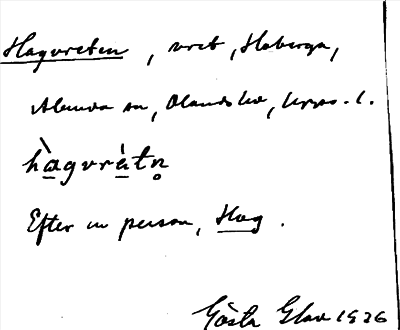 Hagvreten, vret, Haberga,
Almunda sn, Olands hd, Upps. l.
hàgvrètn̥
Efter en person, Hag.
Gösta Elav 1926